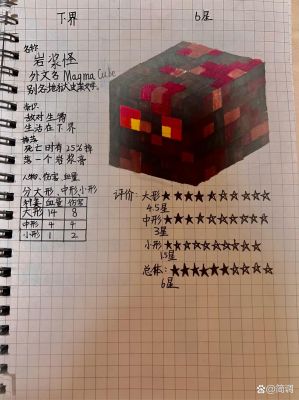 下界
6星
名称
岩浆怪
外文名 Magma Cube
知识
敌对生物
生活在下界
掉落
死亡时有25%掉
落一个岩浆膏
人物、伤害、血量
分大形、中形小形
种类 血量 伤害
大形 14 8
中形 4 4
小形 1 2
评价：大形★★★★★☆☆☆☆☆
4.5星
中形★★★☆☆☆☆☆☆☆
3星
小形★★☆☆☆☆☆☆☆☆
1.5星
总体：★★★★★★☆☆☆☆
6星
@简弱